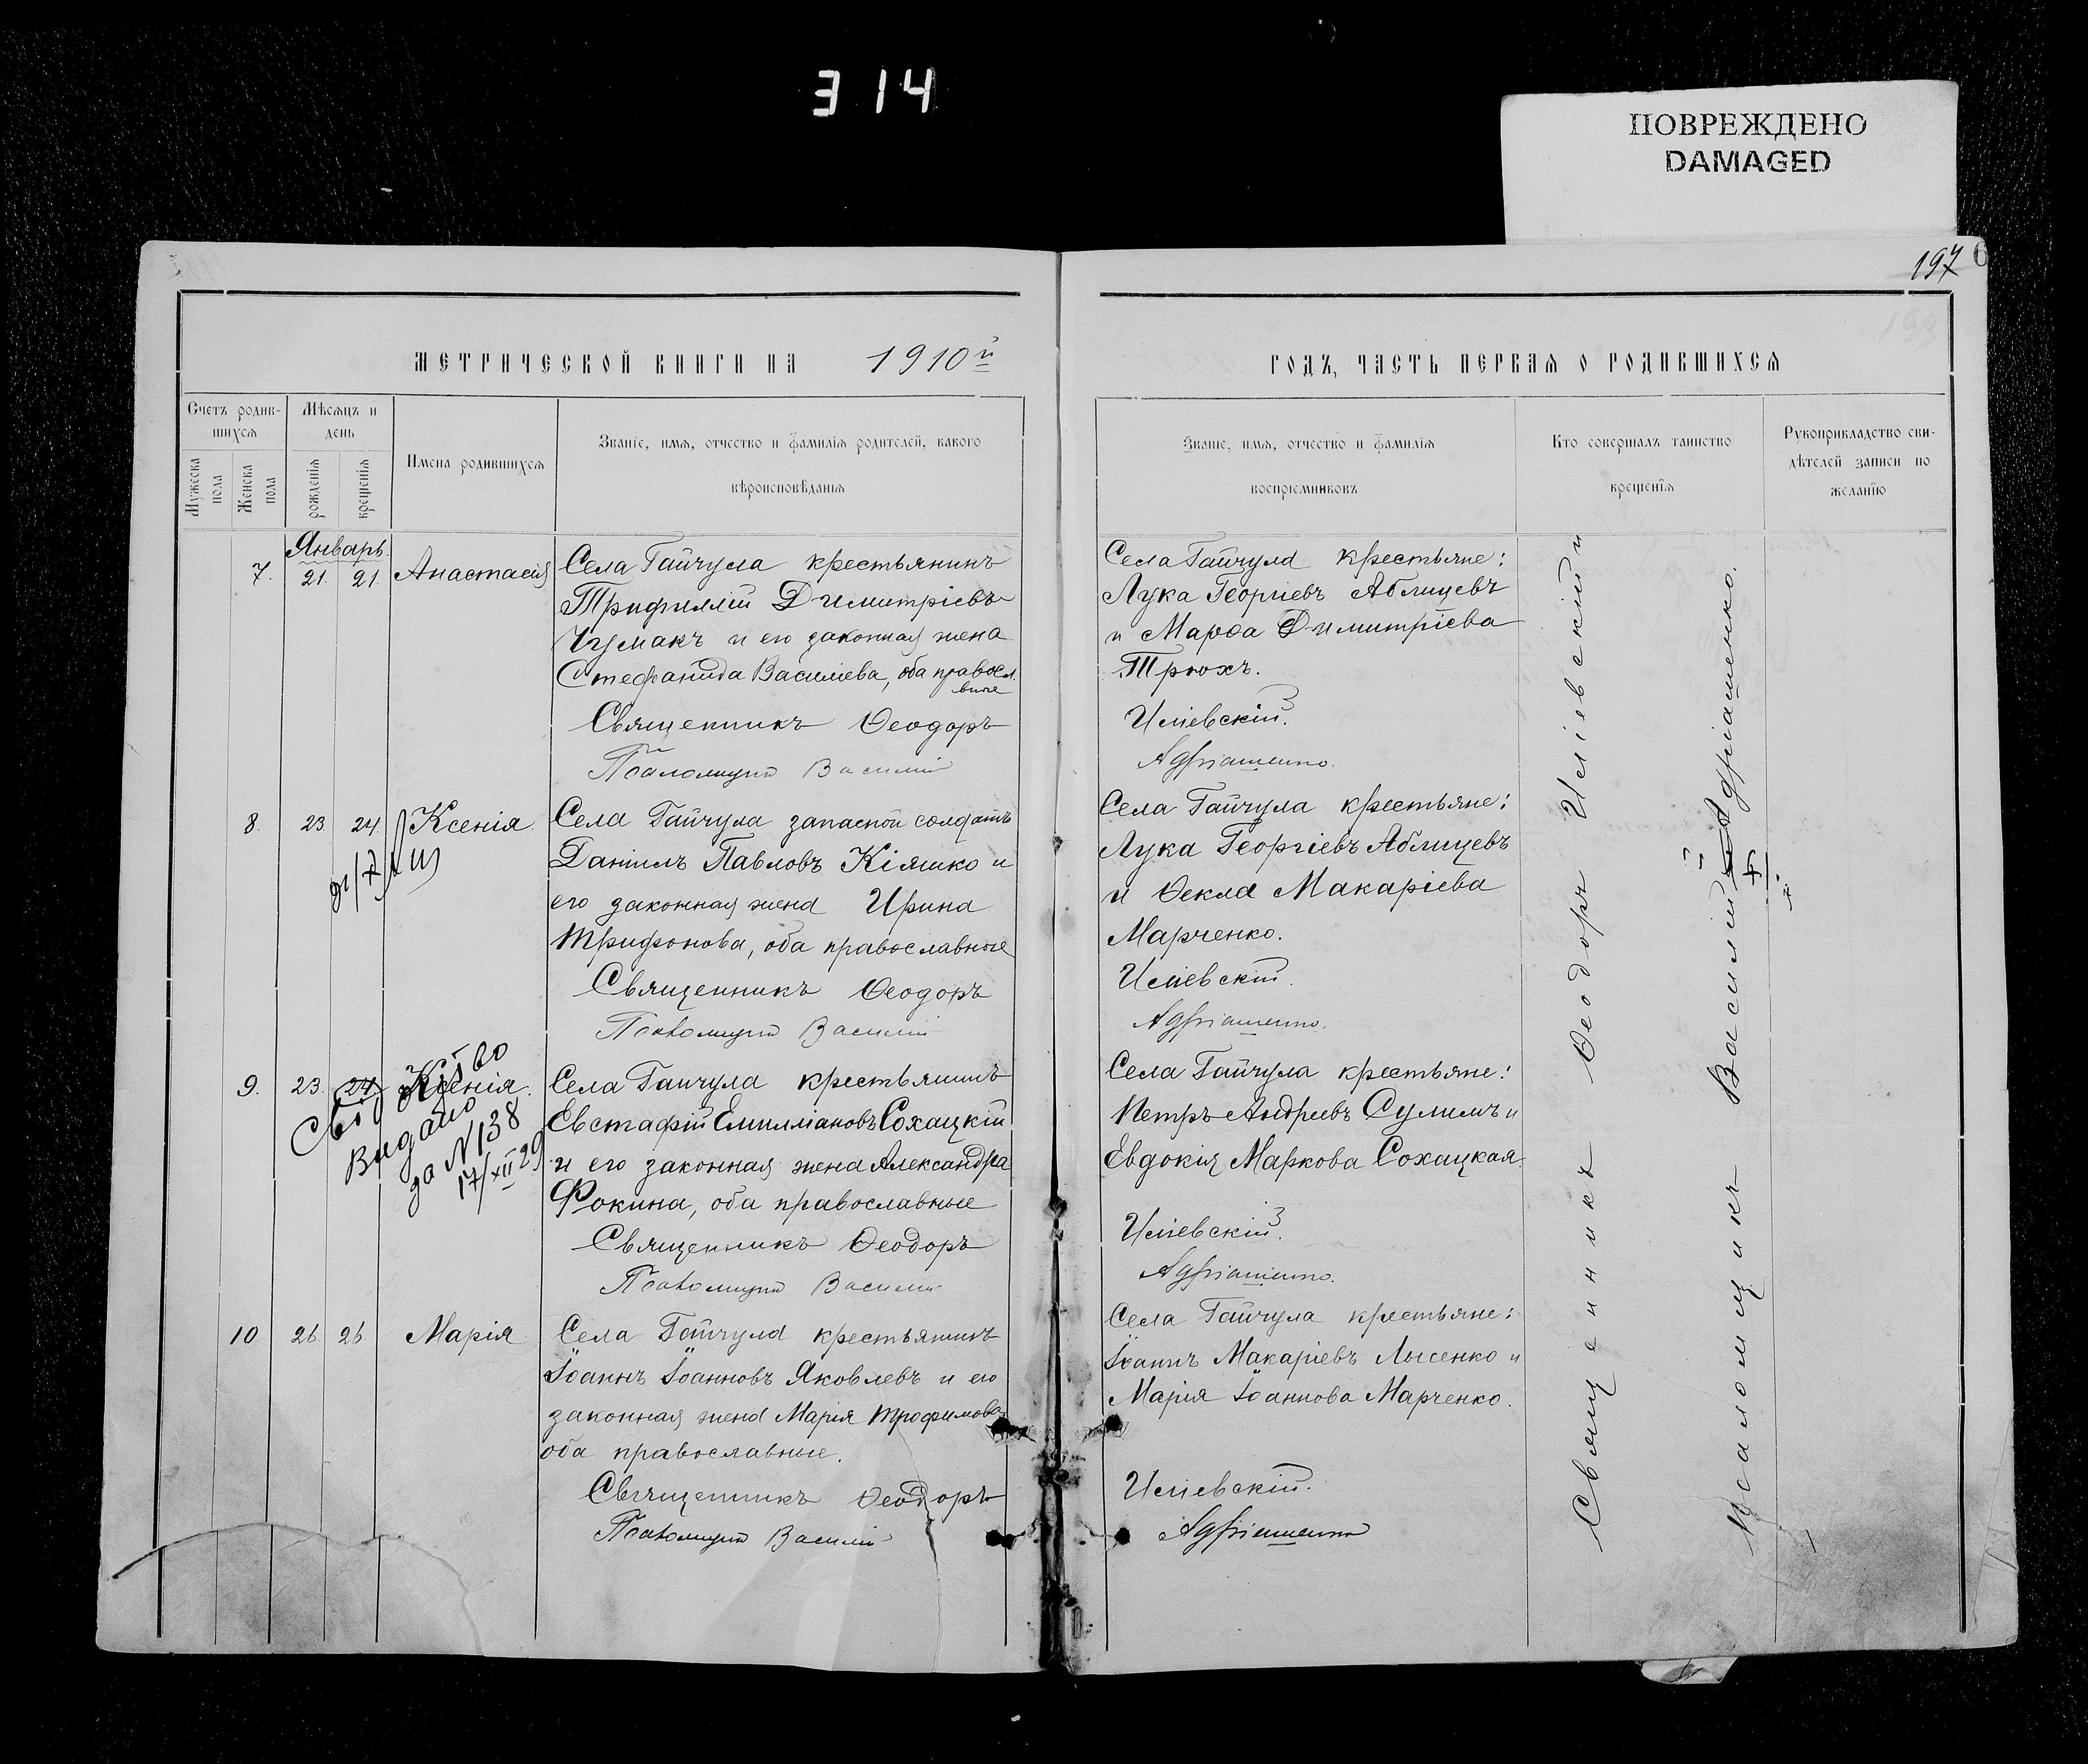 314
ПОВРЕЖДЕНО
DAMAGED
197
МЕТРИЧЕСКОЙ КНИГИ НА 1910й
ГОДЪ, ЧАСТЬ ПЕРВАЯ О РОДИВШИХСЯ
Счетъ родив-
шихся
Мужеска пола
Женска пола
Мѣсяцъ и
день
рожденія
крещенія
Имена родившихся
Званіе, имя, отчество и фамилія родителей, какого
вѣроисповѣданія
Званіе, имя, отчество и фамилія
воспріемниковъ
Кто совершалъ таинство
крещенія
Рукоприкладство сви-
дѣтелей записи по
желанію
Январь.
7. 21. 21. Анастасія
Села Гайчула крестьянинъ
Трифиллій Димитріевъ
Чумакъ и его законная жена
Стефанида Василіева, оба правосл.
вные
Священникъ Ѳеодоръ
Псаломщикъ Василій
Села Гайчула крестьяне:
Лука Георгіевъ Аблицевъ
и Марѳа Димитріева
Трюхъ.
Иліевскій.
Адріашенко.
8. 23. 24. Ксенія.
Села Гайчула запасной солдатъ
Даніилъ Павловъ Кіяшко и
его законная жена Ирина
Трифонова, оба православные
Священникъ Ѳеодоръ
Псаломщикъ Василій
Села Гайчула крестьяне:
Лука Георгіевъ Аблицевъ
и Ѳекла Макаріева
Марченко.
Иліевскій.
Адріашенко.
9. 23. 24. Ксенія.
Видано
за N 138
17/XII 29
Села Гайчула крестьянинъ
Евстафій Емиліановъ Сохацкій
и его законная жена Александра
Фокина, оба православные
Священникъ Ѳеодоръ
Псаломщикъ Василій
Села Гайчула крестьяне:
Петръ Андреевъ Сулимъ и
Евдокія Маркова Сохацкая.
Иліевскій.
Адріашенко.
10 26. 26. Марія
Села Гайчула крестьянинъ
Іоаннъ Іоанновъ Яковлевъ и его
законная жена Марія Трофимова
оба православные.
Священникъ Ѳеодоръ
Псаломщикъ Василій
Села Гайчула крестьяне:
Іоаннъ Макаріевъ Лысенко и
Марія Іоаннова Марченко.
Иліевскій.
Адріашенко
Священникъ Ѳеодоръ Иліевскій и
Псаломщикъ Василій Адріашенко.